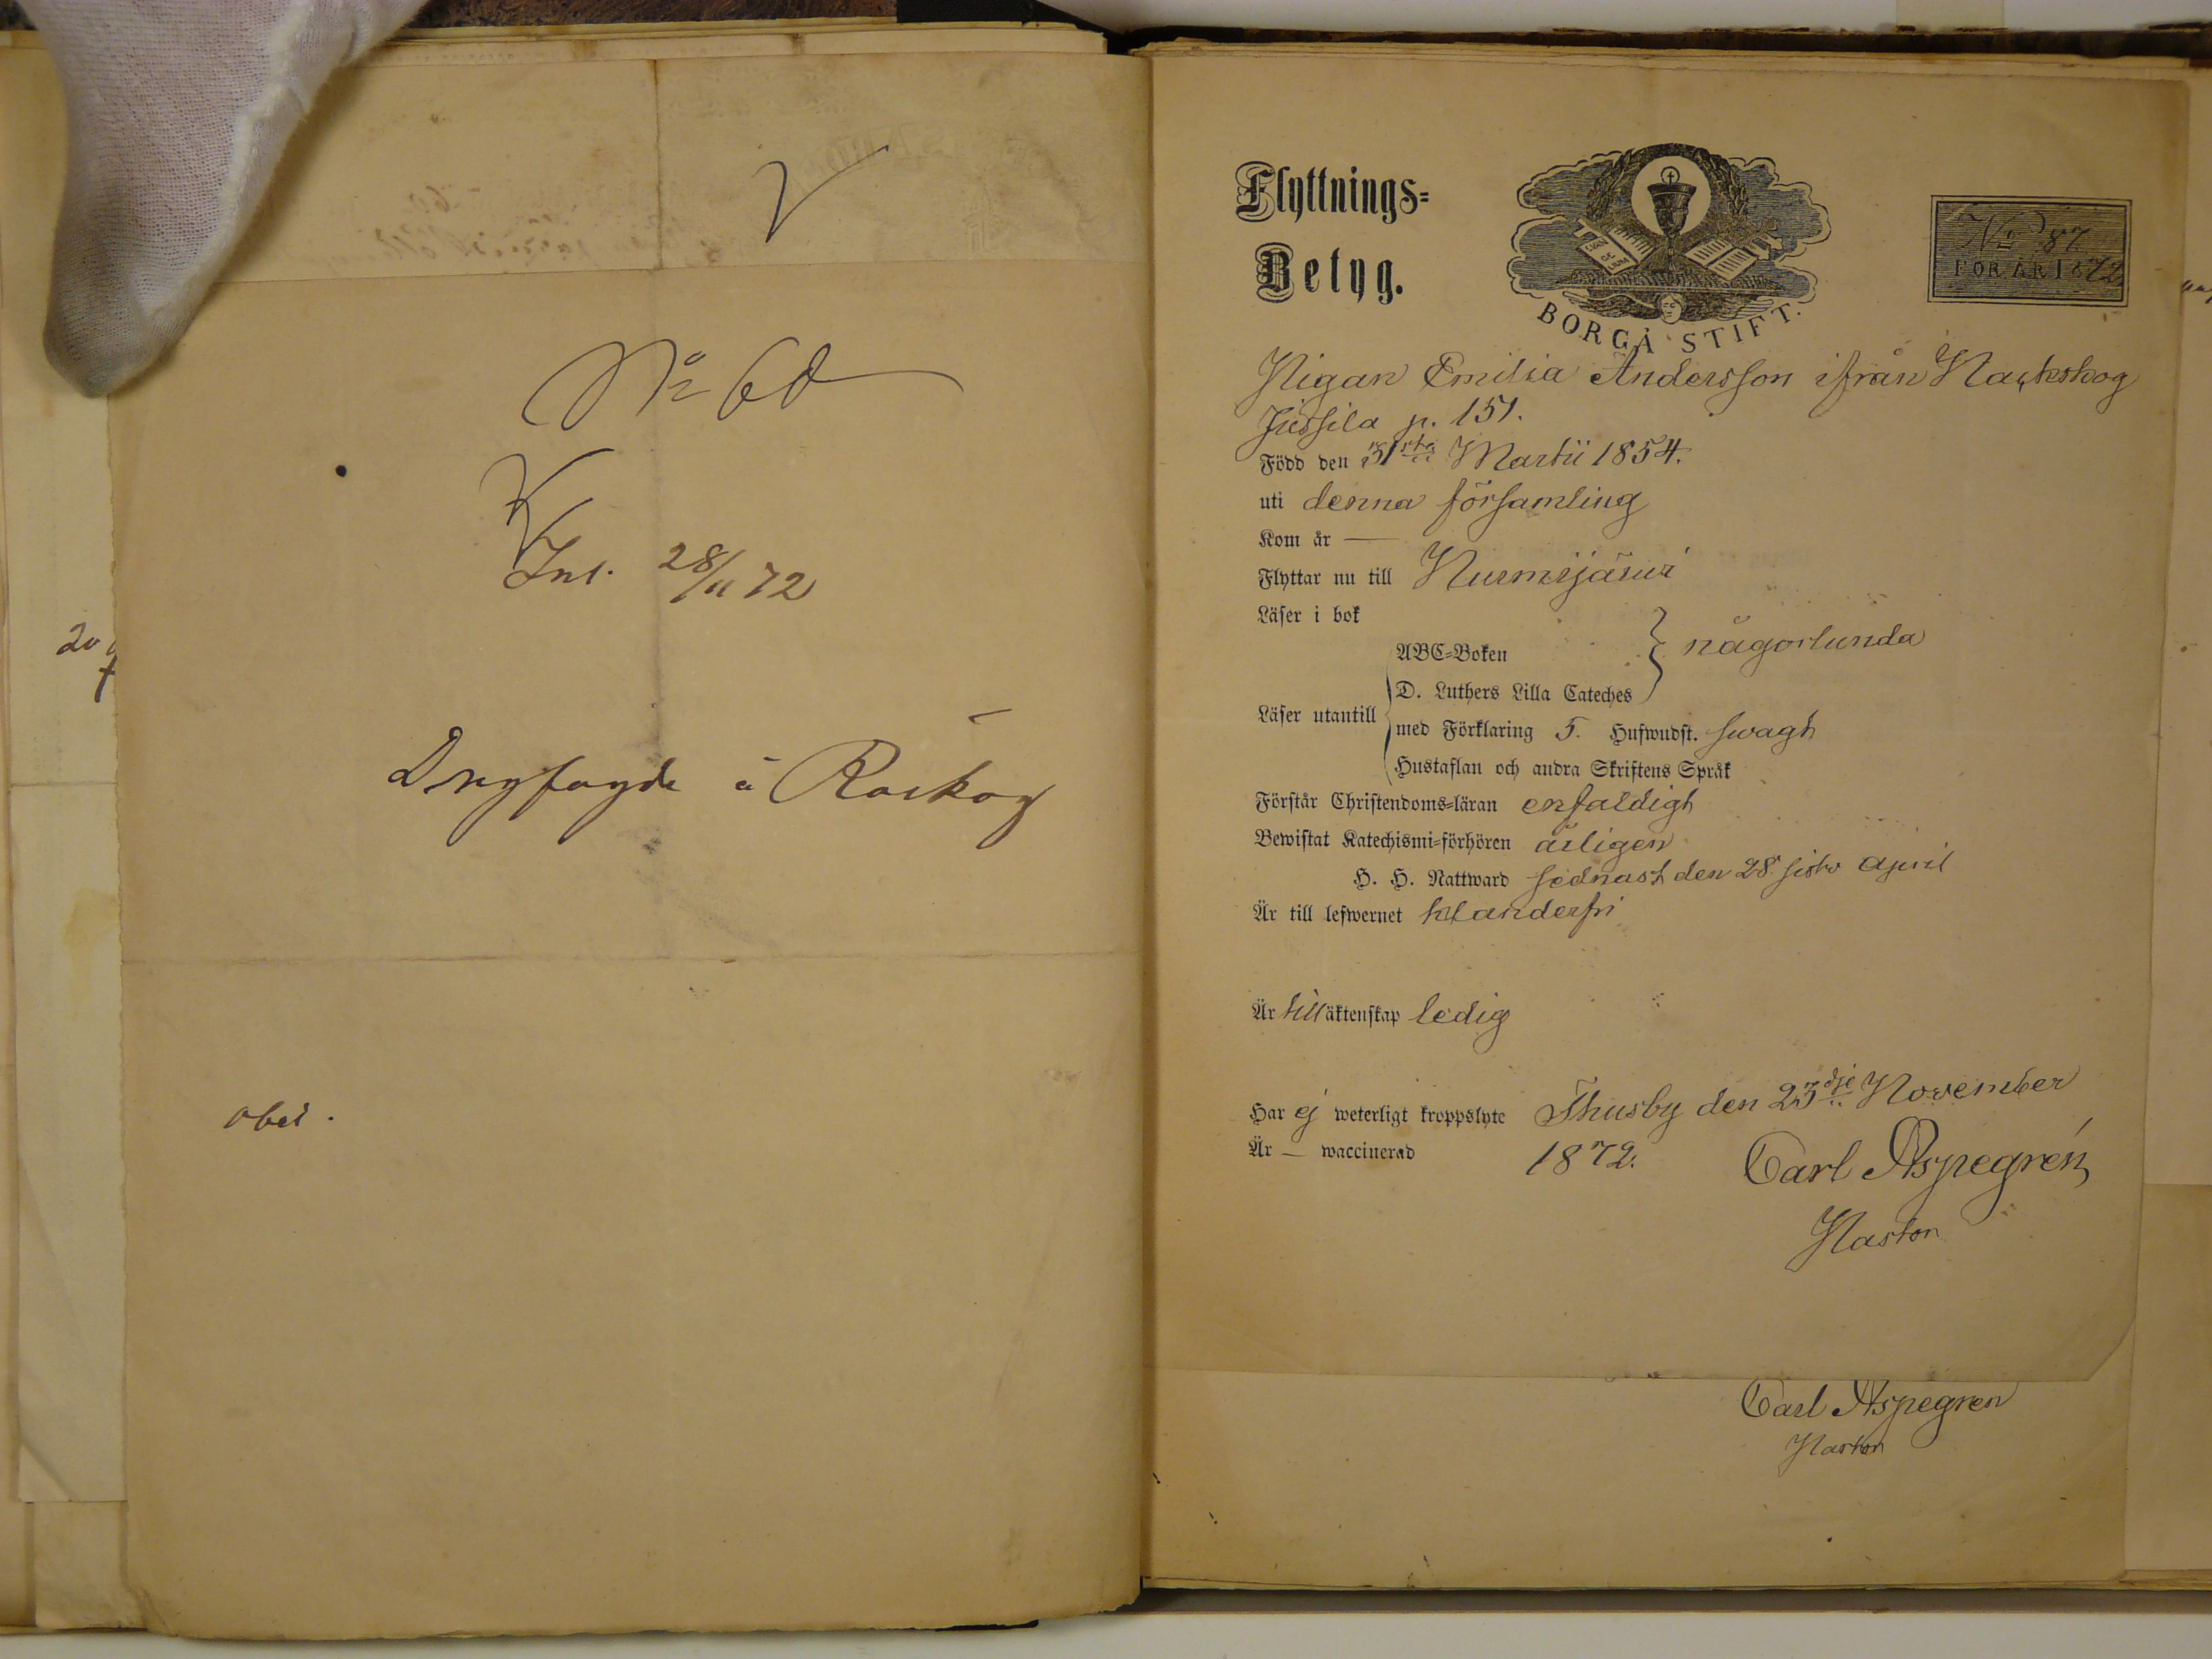 No 60
Inl. 28/11 72
Drgfogde å Raskog
obet.
20
Flyttnings=
Betyg.
EVAN
GE
LIUM
BORGÅ STIFT.
No 87
FÖR ÅR 1872
Pigan Emilia Andersson ifrån Nackskog
Jussila p. 151.
Född den 31sta Martii 1854.
uti denna församling
Kom år —
Flyttar nu till Nurmijärvi
Läser i bok
ABC=Boken
någorlunda
D. Luthers Lilla Cateches
Läser utantill
med Förklaring 5. Hufwudst. swagt
Hustaflan och andra Skriftens Språk
Förstår Christendoms=läran enfaldigt
Bewistat Katechismi=förhören årligen
H. H. Nattward sednast den 28 sistw April
Är till lefwernet klanderfri
Är till äktenskap ledig
Har ej weterligt kroppslyte Thusby den 23dje November
Är — waccinerad 1872. Carl Aspegrén
Pastor
Carl Aspegren
Pastor